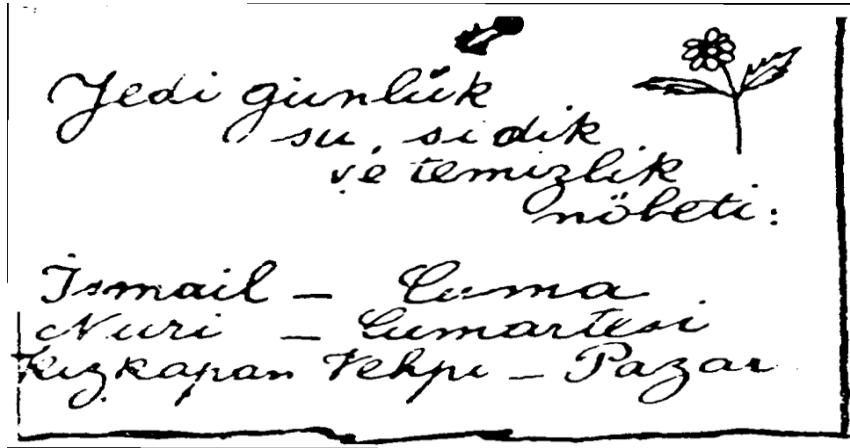 Yedi günlük
su, sidik
ve temizlik
nöbeti:
İsmail – Cuma
Nuri – Cumartesi
Kızkapan Vehpi – Pazar